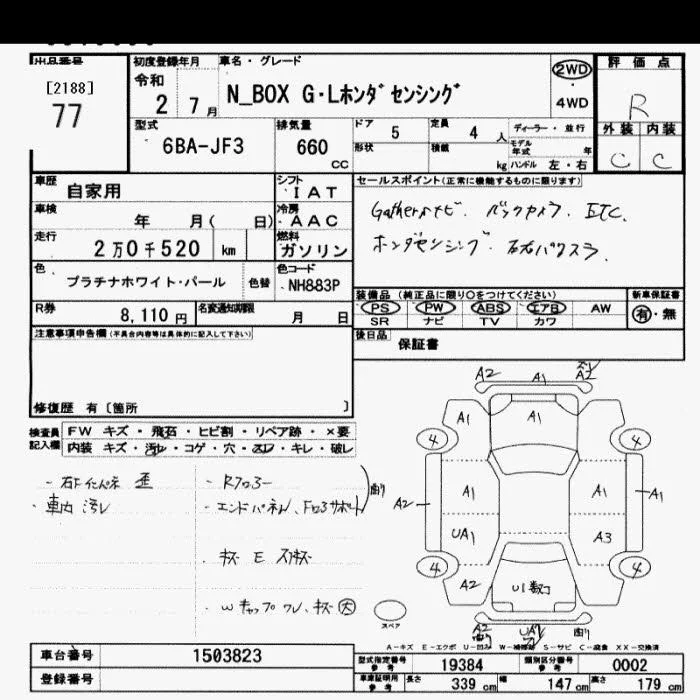 出品番号
[2188]
77
初度登録年月
令和
2 7 月
車名・グレード
N_BOX G・Lホンダセンシング
2WD
・
4WD
評価点
R
外装 内装
C C
型式
6BA-JF3
排気量
660
CC
ドア 5
定員 4 人
形状
積載 kg
ディーラー・並行
モデル年式 年
ハンドル 左・右
車歴
自家用
シフト
I A T
車検
年 月( 日)
冷房
A A C
走行
2 万 0 千 520 km
燃料
ガソリン
色
プラチナホワイト・パール
色替
色コード
NH883P
R券
8,110 円
名変通知期限
月 日
セールスポイント(正常に機能するものに限ります)
Gathersナビ. バックカメラ. ETC.
ホンダセンシング.
装備品 (純正品に限り○をつけてください)
PS PW ABS エアB AW
SR ナビ TV カワ
新車保証書
有・無
後日品
保証書
注意事項申告欄(不具合内容等は具体的に記入して下さい)
修復歴 有〔箇所 〕
検査員
記入欄
FW キズ・飛石・ヒビ割・リペア跡・×要
内装 キズ・汚レ・コゲ・穴・スレ・キレ・破レ
- 車内 汚レ
- Rフロアー
- エンドパネル、
A2 A1 A2
A1 A1
4 4
A1 A1
A2 A1
UA1 A3
4 4
A2 U1
A2 UA1
スペア
A-キズ E-エクボ U-凹ミ W-補修跡 S-サビ C-腐食 XX-交換済
車台番号
1503823
登録番号
型式指定番号
参考
19384
類別区分番号
参考
0002
車庫証明用
参考
長さ 339 cm
幅 147 cm
高さ 179 cm